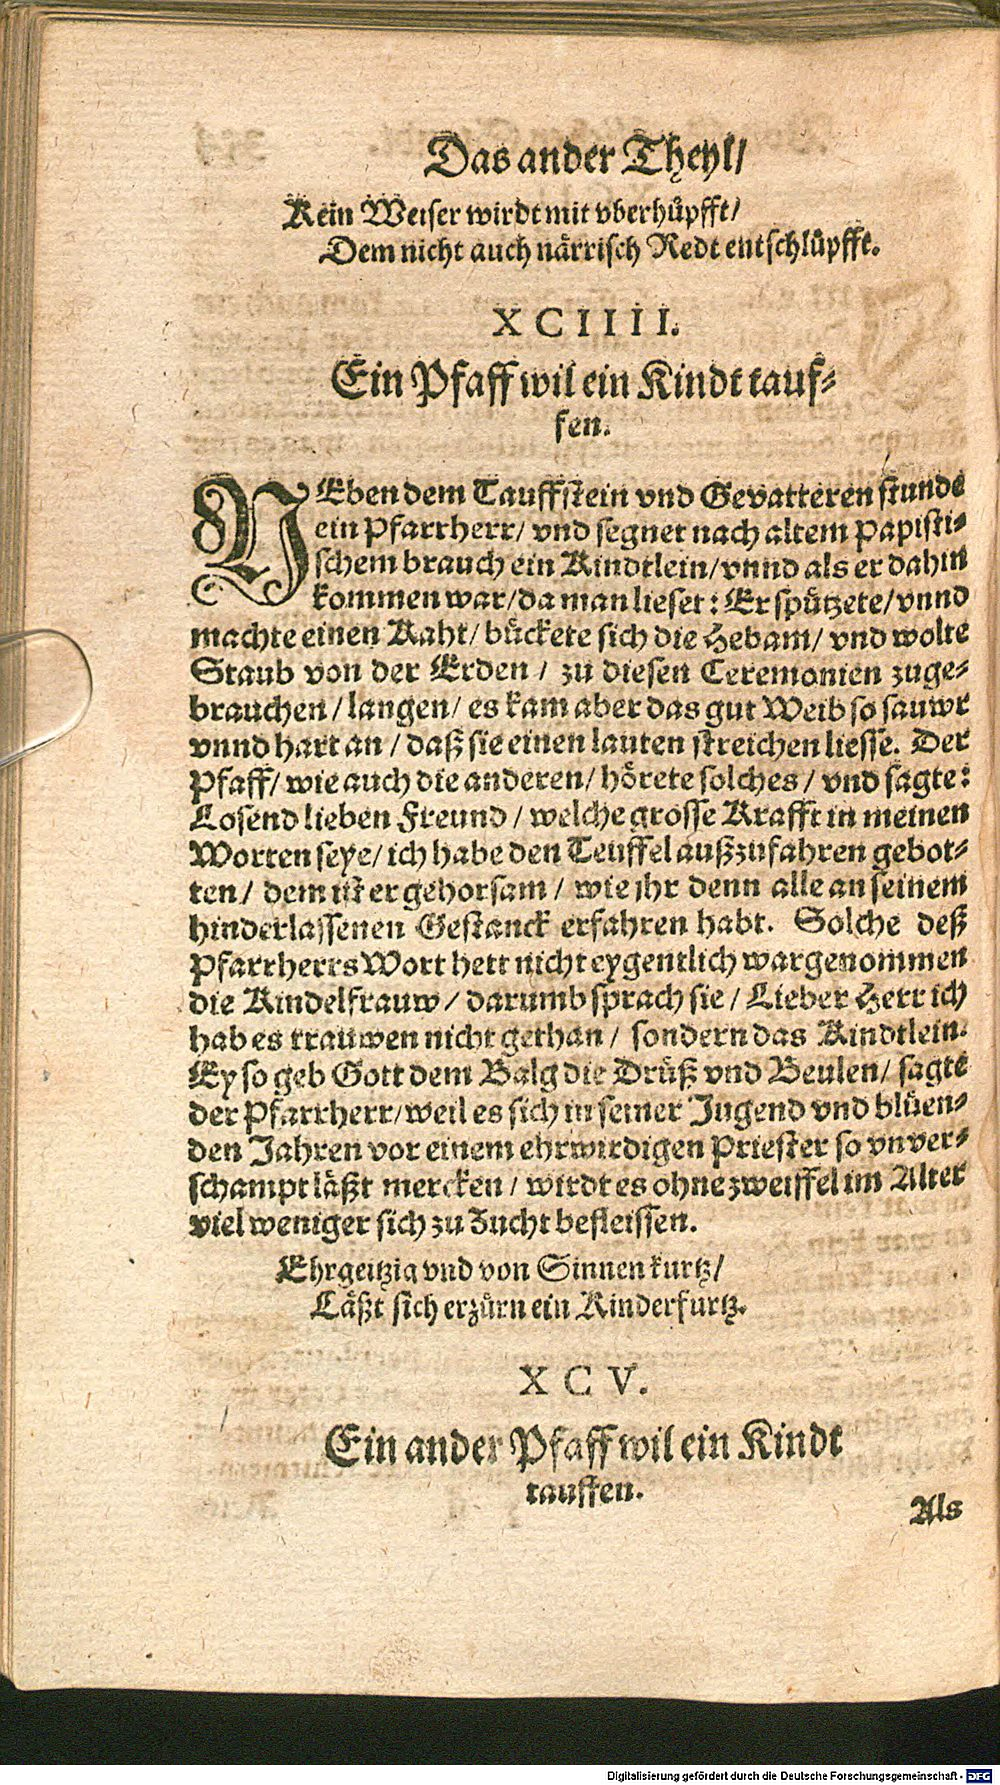 Das ander Theyl/
Kein Weiser wirdt mit vberhůpfft/
Dem nicht auch närrisch Redt entschlůpfft.
XCIIII.
Ein Pfaff wil ein Kindt tauf-
fen.
NEben dem Tauffstein vnd Gevatteren stunde
ein Pfarrherr/ vnd segnet nach altem Papisti-
schem brauch ein Kindtlein/ vnnd als er dahin
kommen war/ da man lieset: Er spützete/ vnnd
machte einen Kaht/ bückete sich die Hebam/ vnd wolte
Staub von der Erden / zu diesen Ceremonien zuge-
brauchen/ langen/ es kam aber das gut Weib so sauwr
vnnd hart an / daß sie einen lauten streichen liesse. Der
Pfaff/ wie auch die anderen/ hörete solches / vnd sagte:
Losend lieben Freund / welche grosse Krafft in meinen
Worten seye/ ich habe den Teuffel außzufahren gebot-
ten/ dem ist er gehorsam / wie jhr denn alle an seinem
hinderlassenen Gestanck erfahren habt. Solche deß
Pfarrherrs Wort hett nicht eygentlich wargenommen
die Kindelfrauw/ darumb sprach sie / Lieber Herr ich
hab es trauwen nicht gethan / sondern das Kindtlein.
Ey so geb Gott dem Balg die Drüß vnd Beulen/ sagte
der Pfarrherr/ weil es sich in seiner Jugend vnd blüen-
den Jahren vor einem ehrwirdigen Priester so vnver-
schampt läßt mercken / wirdt es ohne zweiffel im Alter
viel weniger sich zu Zucht befleissen.
Ehrgeitzig vnd von Sinnen kurtz/
Läßt sich erzürn ein Kinderfurtz.
XCV.
Ein ander Pfaff wil ein Kindt
tauffen.
Als
Digitalisierung gefördert durch die Deutsche Forschungsgemeinschaft - DFG